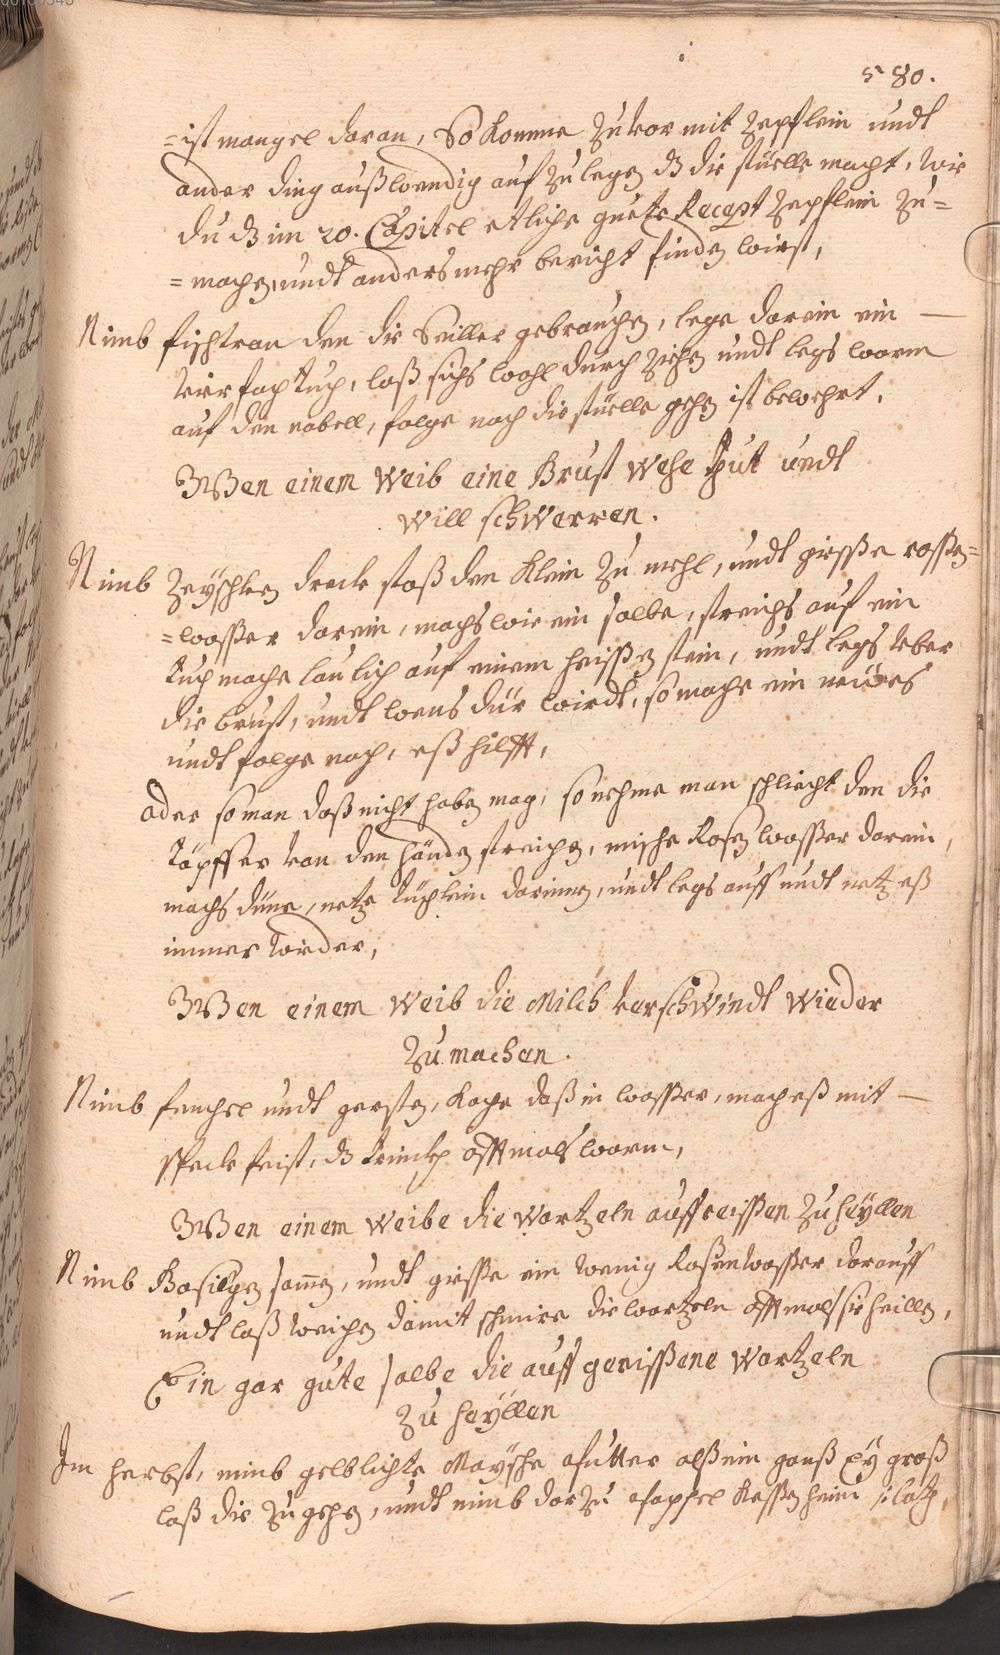 580.
=ist mangel daran, So komme zuvor mit Zepflein undt
ander ding außwendig auf zu legen dz die stüelle macht, wie
du dz im 20. Capitel etliche guete Recept Zepflein zu=
=machen, undt anders mehr bericht finden wirst,
Nimb fischtran den die Seiller gebrauchen, lege darein ein —
vierfach tuch, laß sichs wohl durch ziehen undt legs warm
auf den nabell, folge nach die stüelle gehen ist bewehrt.
Wen einem Weib eine Brust Wehe thut undt
will schwerren.
Nimb dreck stoß den klein zu mehl, undt giesse rossen=
=wasser darein, machs wie ein salbe, streichs auf ein
tuch mache laulich auf einem heissen stein, undt legs über
die brust, undt wens dür wirdt, so mache ein neües
undt folge nach, eß hilfft,
oder so man daß nicht haben mag, so nehme man schliecht den die
töpffer von den händen streichen, mische Rosen wasser darein,
machs düne, netze tüchlein darinnen, undt legs auff undt netz eß
immer wieder,
Wen einem Weib die Milch verschwindt wieder
zu machen.
Nimb fenchel undt gersten, koche daß in wasser, mach eß mit —
speck feist, dz trinckh offtmals warm,
Wen einem Weibe die wartzeln auffreissen zu heyllen
Nimb Basilgen samen, undt giesse ein wenig Rosenwasser darauff
undt laß weichen damit schmire die wartzeln offtmals sie heillen,
Ein gar gute salbe die auff gerissene wartzeln
zu heyllen
Im herbst, nimb gelblichte Maysche butter alß ein ganß Ey groß
laß die zu gehen, undt nimb darzu